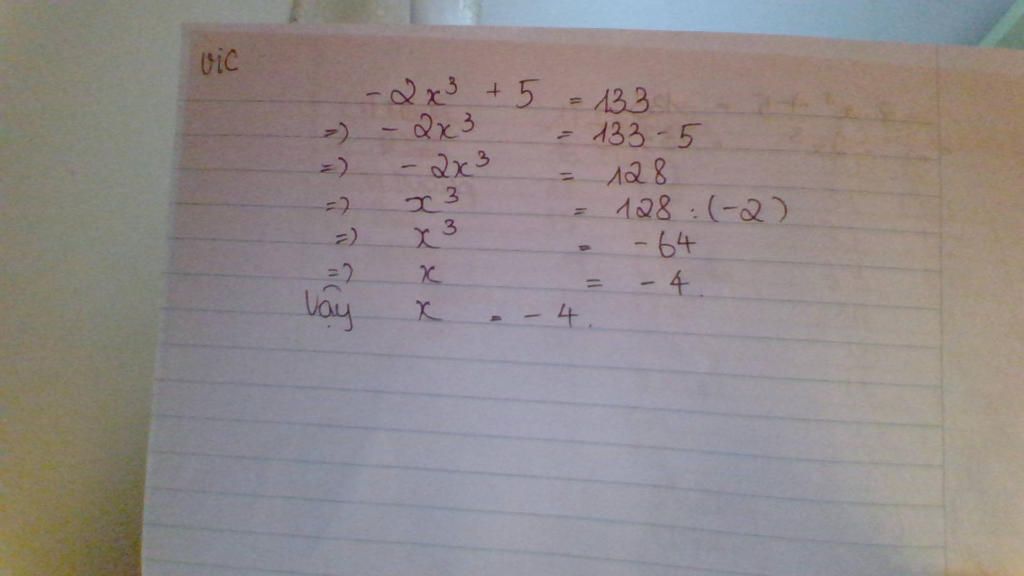 vic
-2x³ + 5 = 133
=) -2x³ = 133 - 5
=) -2x³ = 128
=) x³ = 128 : (-2)
=) x³ = -64
=) x = -4.
Vậy x = -4.